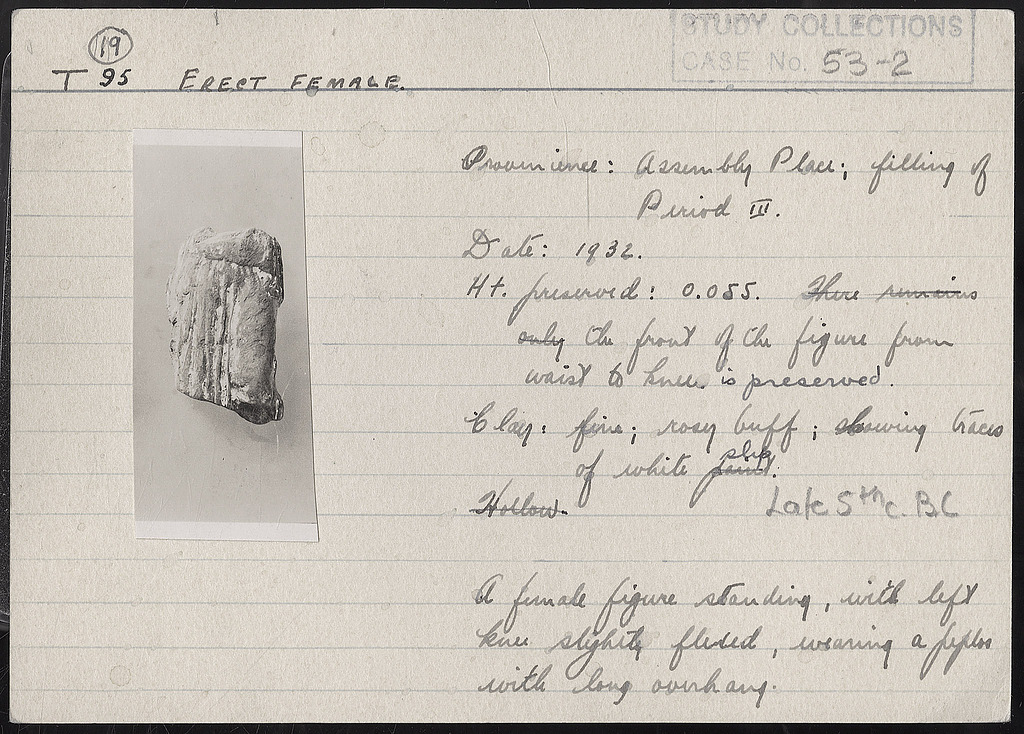 STUDY COLLECTIONS
CASE No. 53-2
19
T 95 ERECT FEMALE.
Provenience: Assembly Place; filling of
Period III.
Date: 1932.
Ht. preserved: 0.055. There remains
only the front of the figure from
waist to knee is preserved.
Clay: fine; rosy buff; showing traces
of white paint slip.
Hollow.
Late 5th c. BC
A female figure standing, with left
knee slightly flexed, wearing a peplos
with long overhang.